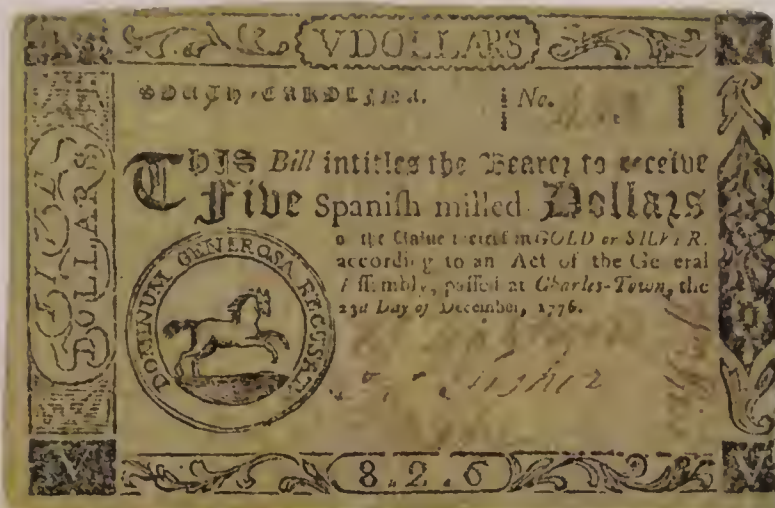 V DOLLARS
SOUTH-CAROLINA.
No.
THIS Bill intitles the Bearer to receive
Five Spanish milled Dollars
or the Value thereof in GOLD or SILVER.
according to an Act of the General
Assembly, passed at Charles-Town, the
23d Day of December, 1776.
DOMINUM GENEROSA RECUSAT
DOLLARS
8.2.6
V
V
V